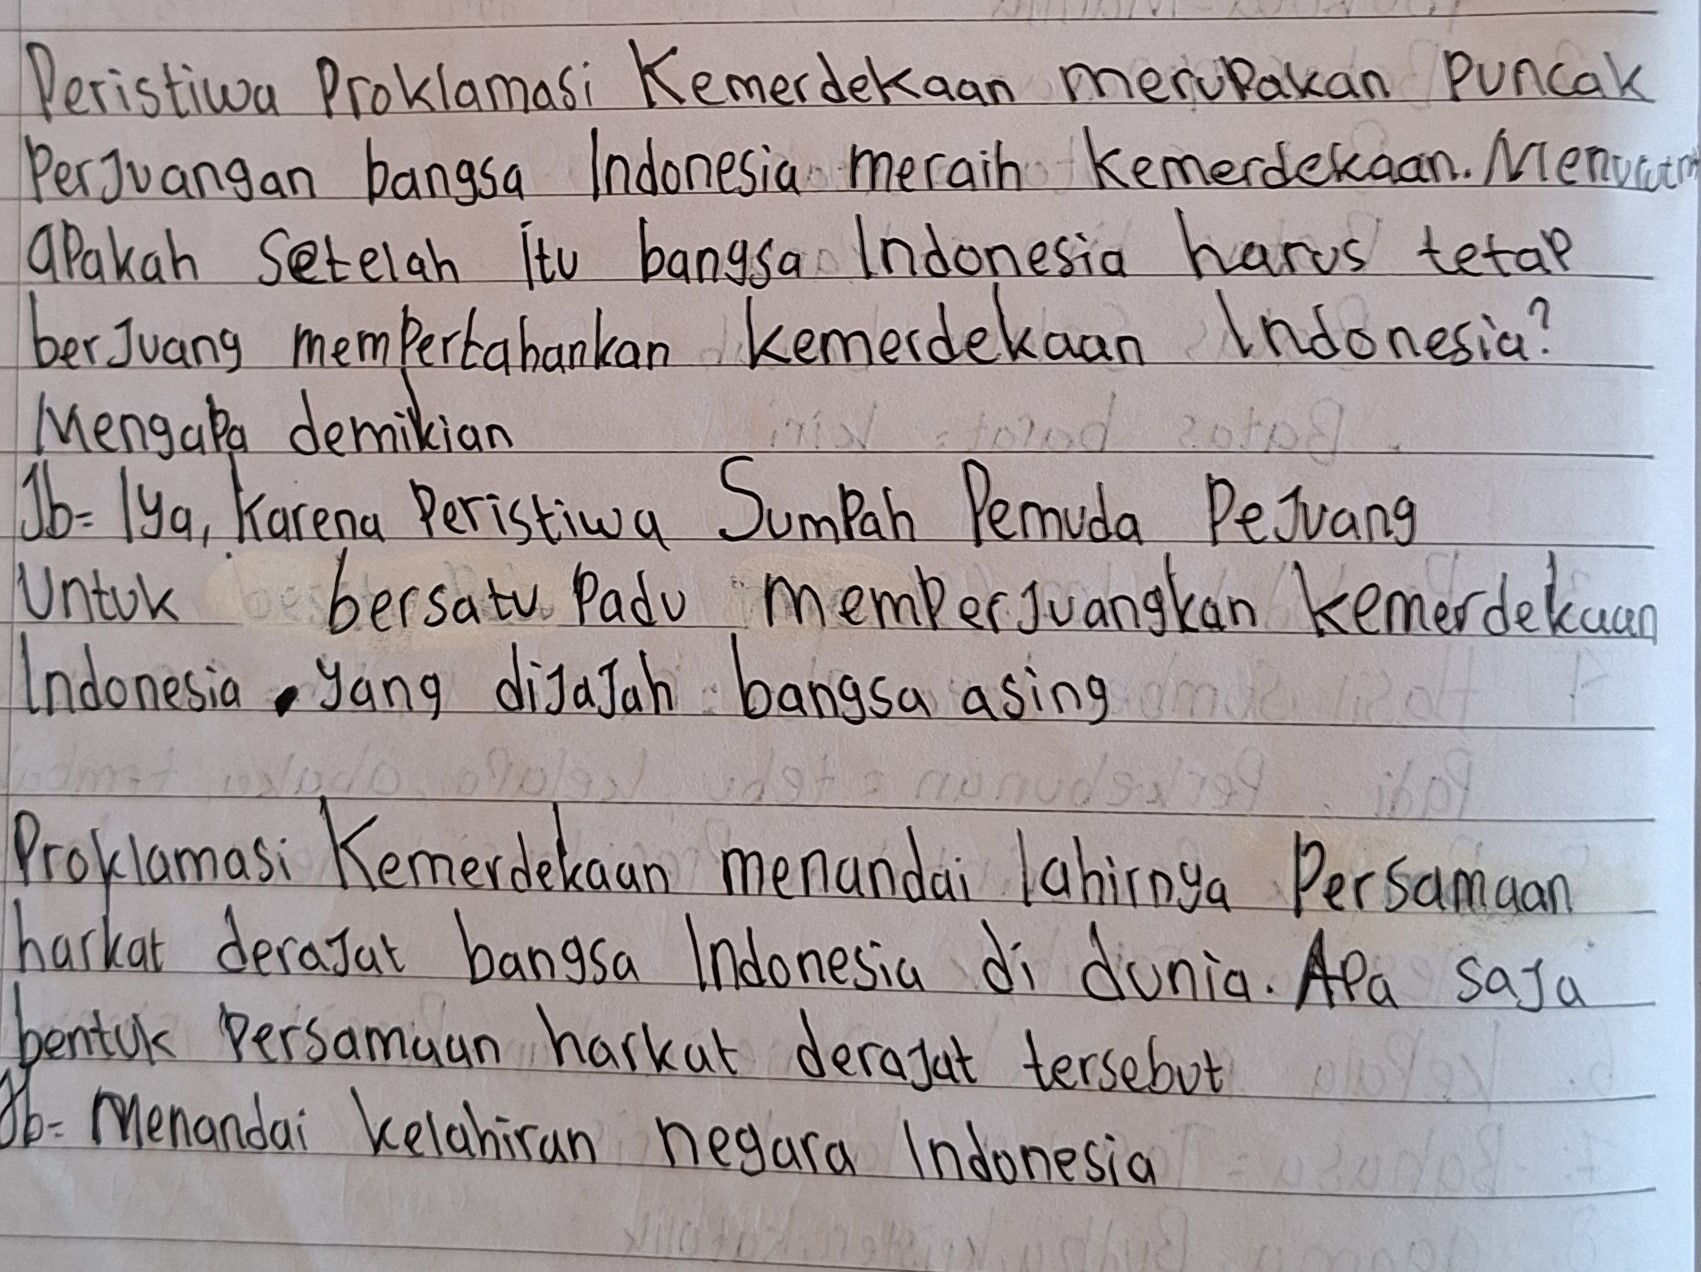 Peristiwa Proklamasi Kemerdekaan merupakan puncak
Perjuangan bangsa Indonesia meraih kemerdekaan.
apakah setelah itu bangsa Indonesia harus tetap
berjuang mempertahankan kemerdekaan Indonesia?
Mengapa demikian
Jb= Iya, karena Peristiwa Sumpah Pemuda Pejuang
Untuk bersatu Padu memperjuangkan kemerdekaan
Indonesia yang dijajah bangsa asing
Proklamasi Kemerdekaan menandai lahirnya Persamaan
harkat derajat bangsa Indonesia di dunia. Apa saja
bentuk Persamaan harkat derajat tersebut
Jb= Menandai kelahiran negara Indonesia